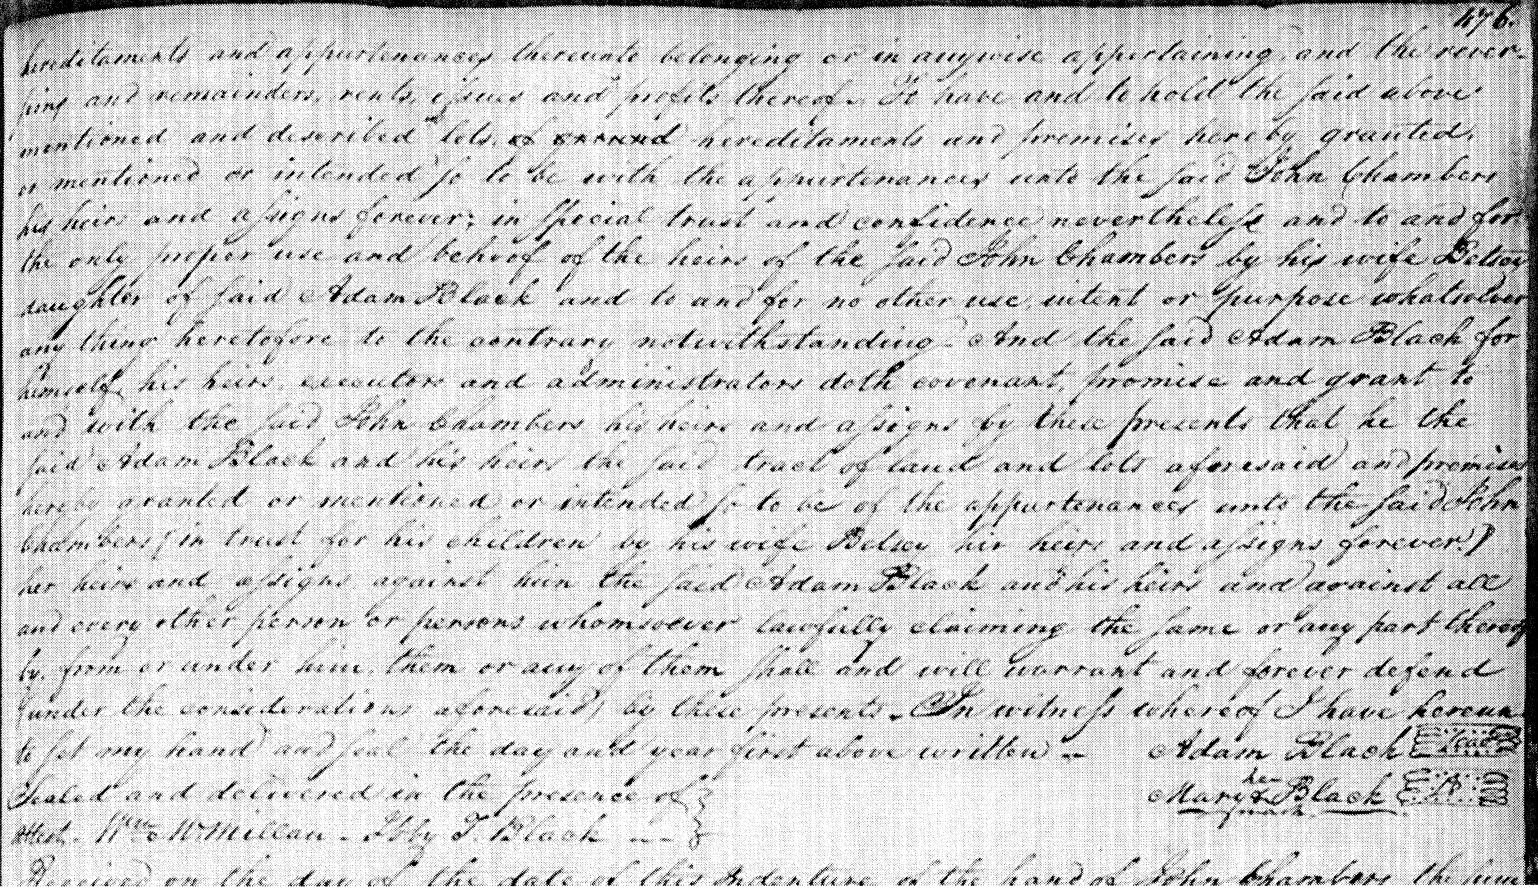 476.
hereditaments and appurtenances thereunto belonging or in anywise appertaining and the rever-
sions and remainders, rents, issues and profits thereof. To have and to hold the said above
mentioned and described lots, of ground hereditaments and premises hereby granted,
or mentioned or intended so to be with the appurtenances unto the said John Chambers
his heirs and assigns forever; in special trust and confidence nevertheless and to and for
the only proper use and behoof of the heirs of the said John Chambers by his wife Betsey
daughter of said Adam Black and to and for no other use, intent or purpose whatsoever
any thing heretofore to the contrary notwithstanding. And the said Adam Black for
himself, his heirs, executors and administrators doth covenant, promise and grant to
and with the said John Chambers his heirs and assigns by these presents that he the
said Adam Black and his heirs the said tract of land and lots aforesaid and premises
hereby granted or mentioned or intended so to be of the appurtenances unto the said John
Chambers (in trust for his children by his wife Betsey hir heirs and assigns forever.)
her heirs and assigns against him the said Adam Black and his heirs and against all
and every other person or persons whomsoever lawfully claiming the same or any part thereof
by, from or under him, them or any of them shall and will warrant and forever defend
(under the considerations aforesaid) by these presents. In witness whereof I have hereun-
to set my hand and seal the day and year first above written -- Adam Black Seal
Sealed and delivered in the presence of
her
Mary x Black
mark
Attest. Wm McMillan - Ibby T. Black ---
Received on the day of the date of this Indenture of the hand of John Chambers the sum